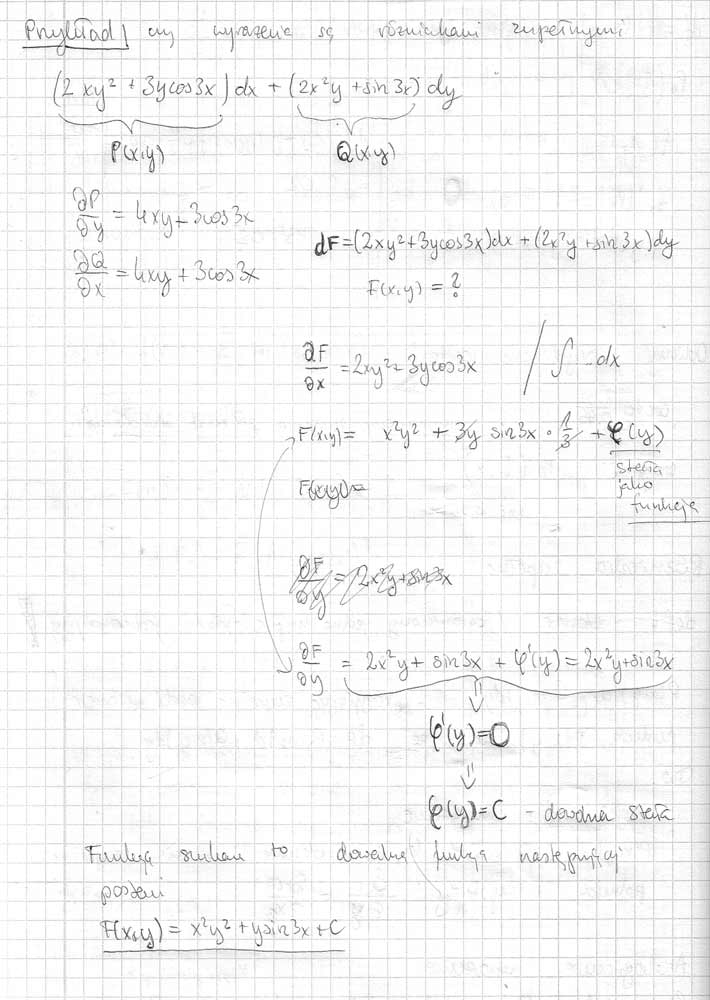 Przykład 1 czy wyrażenia są różniczkami zupełnymi
(2xy² + 3ycos3x)dx + (2x²y + sin3x)dy
P(x,y) Q(x,y)
∂P/∂y = 4xy + 3cos3x
dF = (2xy² + 3ycos3x)dx + (2x²y + sin3x)dy
∂Q/∂x = 4xy + 3cos3x
F(x,y) = ?
∂F/∂x = 2xy² + 3ycos3x / ∫ ...dx
F(x,y) = x²y² + 3y sin3x · 1/3 + φ(y)
stała
jako
funkcja
F(x,y) =
∂F/∂y = 2x²y + sin3x
∂F/∂y = 2x²y + sin3x + φ'(y) = 2x²y + sin3x
⇓
φ'(y) = 0
⇓
φ(y) = C - dowolna stała
Funkcją szukaną to dowolna funkcja następującej
postaci
F(x,y) = x²y² + ysin3x + C